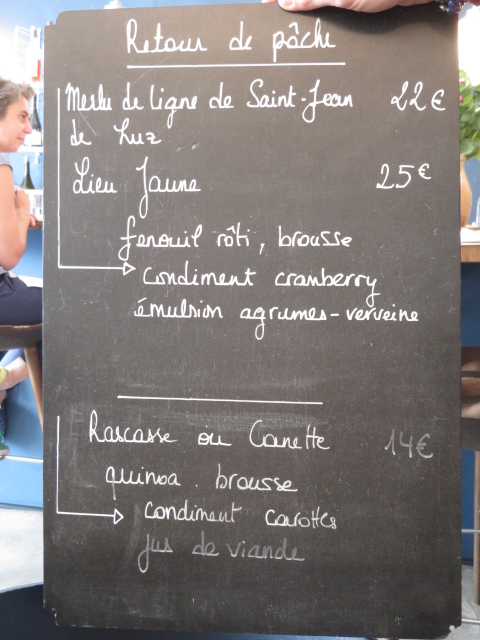 Retour de pâche
Merlu de ligne de Saint-Jean 22€
de Luz
Lieu Jaune 25€
fenouil rôti, brousse
condiment cranberry
émulsion agrumes-verveine
Rascasse ou Canette 14€
quinoa. brousse
condiment carottes
jus de viande